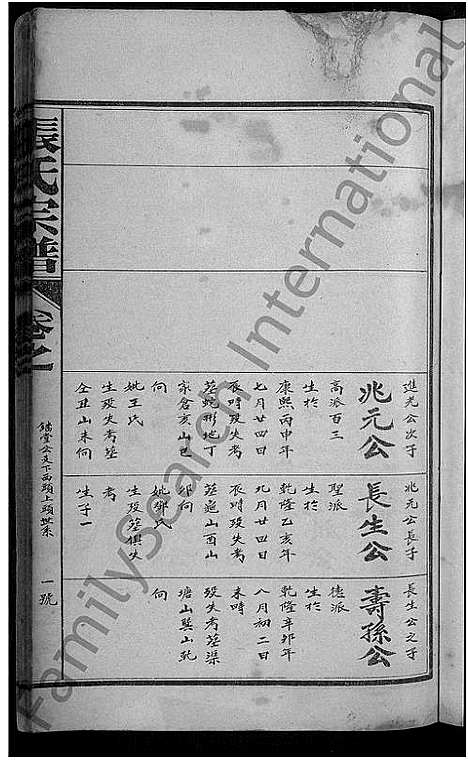 進光公次子
兆元公
高派百三
生於
康熙丙申年
七月廿四日
辰時歿失考
墓蛇形地丁
家倉亥山巳
向
妣王氏
生歿失考墓
仝丑山未向
兆元公長子
長生公
聖派
生於
乾隆乙亥年
九月廿四日
辰時歿失考
墓龜山酉山
卯向
妣鄭氏
生歿墓俱失
考
生子一
長生公之子
壽孫公
德派
生於
乾隆辛卯年
八月初二日
未時
歿失考墓渠
塘山巽山乾
向
張氏宗譜
卷之
公支下西頭上頭世系
一號
FamilySearch International